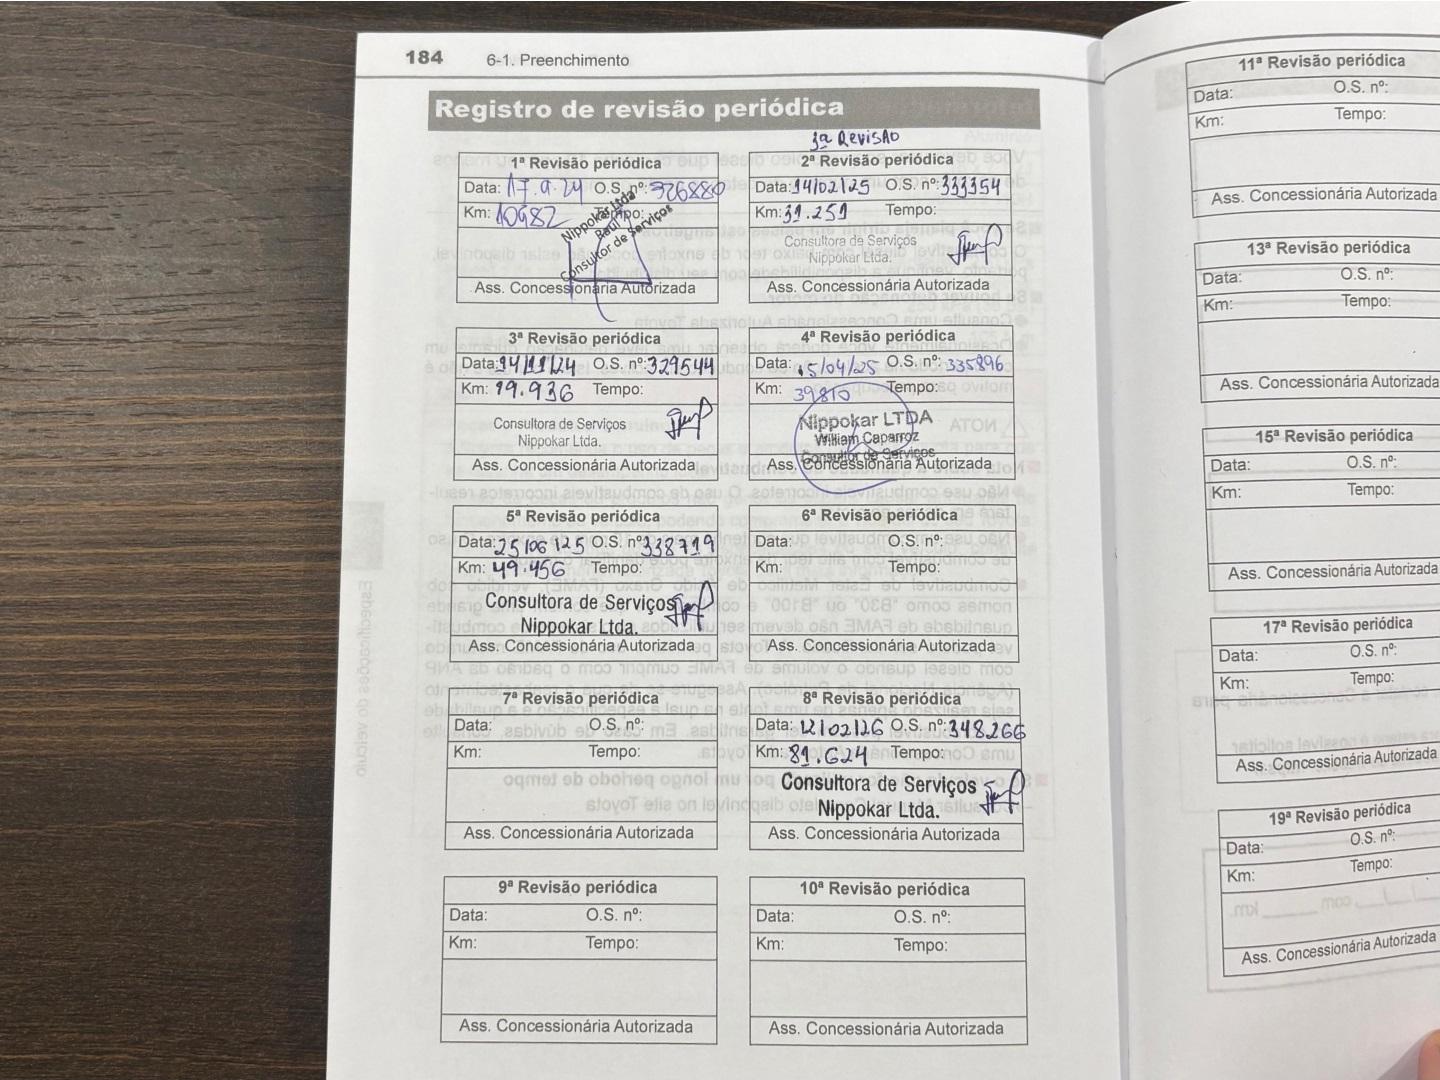 184 6-1. Preenchimento
Registro de revisão periódica
3ª REVISÃO
1ª Revisão periódica
Data: 17.9.24 O.S. nº: 326880
Km: 10982 Tempo:
Nippokar Ltda
Raul
Consultor de Serviços
Ass. Concessionária Autorizada
2ª Revisão periódica
Data: 14/02/25 O.S. nº: 333354
Km: 31.251 Tempo:
Consultora de Serviços
Nippokar Ltda.
Ass. Concessionária Autorizada
3ª Revisão periódica
Data: 14/11/24 O.S. nº: 329544
Km: 19.936 Tempo:
Consultora de Serviços
Nippokar Ltda.
Ass. Concessionária Autorizada
4ª Revisão periódica
Data: 15/04/25 O.S. nº: 335896
Km: 39810 Tempo:
Nippokar LTDA
William Caparroz
Consultor de Serviços
Ass. Concessionária Autorizada
5ª Revisão periódica
Data: 25/06/25 O.S. nº: 338719
Km: 49.456 Tempo:
Consultora de Serviços
Nippokar Ltda.
Ass. Concessionária Autorizada
6ª Revisão periódica
Data: O.S. nº:
Km: Tempo:
Ass. Concessionária Autorizada
7ª Revisão periódica
Data: O.S. nº:
Km: Tempo:
Ass. Concessionária Autorizada
8ª Revisão periódica
Data: 12/02/26 O.S. nº: 348266
Km: 81.624 Tempo:
Consultora de Serviços
Nippokar Ltda.
Ass. Concessionária Autorizada
9ª Revisão periódica
Data: O.S. nº:
Km: Tempo:
Ass. Concessionária Autorizada
10ª Revisão periódica
Data: O.S. nº:
Km: Tempo:
Ass. Concessionária Autorizada
11ª Revisão periódica
Data: O.S. nº:
Km: Tempo:
Ass. Concessionária Autorizada
13ª Revisão periódica
Data: O.S. nº:
Km: Tempo:
Ass. Concessionária Autorizada
15ª Revisão periódica
Data: O.S. nº:
Km: Tempo:
Ass. Concessionária Autorizada
17ª Revisão periódica
Data: O.S. nº:
Km: Tempo:
Ass. Concessionária Autorizada
19ª Revisão periódica
Data: O.S. nº:
Km: Tempo:
Ass. Concessionária Autorizada